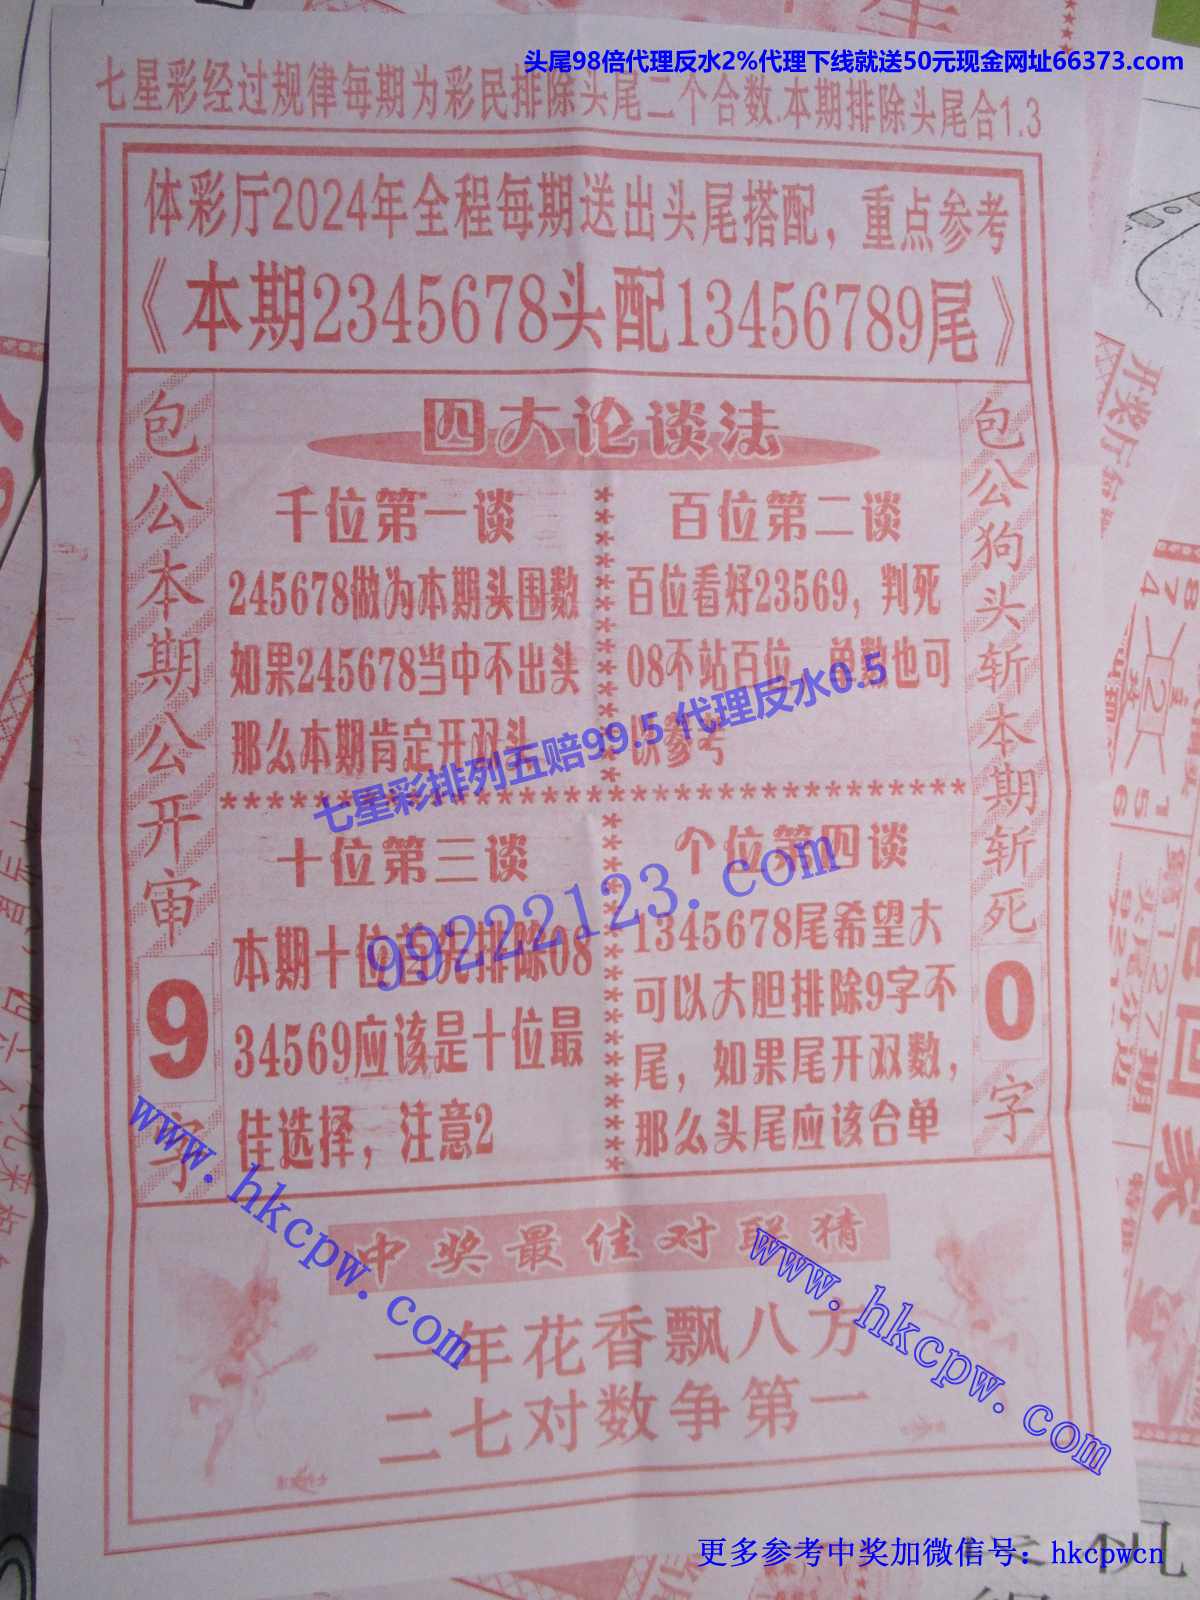 头尾98倍代理反水2%代理下线就送50元现金网址66373.com
七星彩经过规律每期为彩民排除头尾二个合数.本期排除头尾合1.3
体彩厅2024年全程每期送出头尾搭配，重点参考
《本期2345678头配13456789尾》
包公本期公开审
9
字
四大论谈法
千位第一谈
245678做为本期头围数
如果245678当中不出头
那么本期肯定开双头
百位第二谈
百位看好23569，判死
08不站百位，单数也可
供参考
七星彩排列五赔99.5 代理反水0.5
***************************************
十位第三谈
本期十位首先排除08
34569应该是十位最
佳选择，注意2
个位第四谈
1345678尾希望大
可以大胆排除9字不
尾，如果尾开双数，
那么头尾应该合单
99222123.com
包公狗头斩本期斩死
0
字
www.hkcpw.com
www.hkcpw.com
中奖最佳对联猜
一年花香飘八方
二七对数争第一
更多参考中奖加微信号：hkcpwcn
开奖厅每